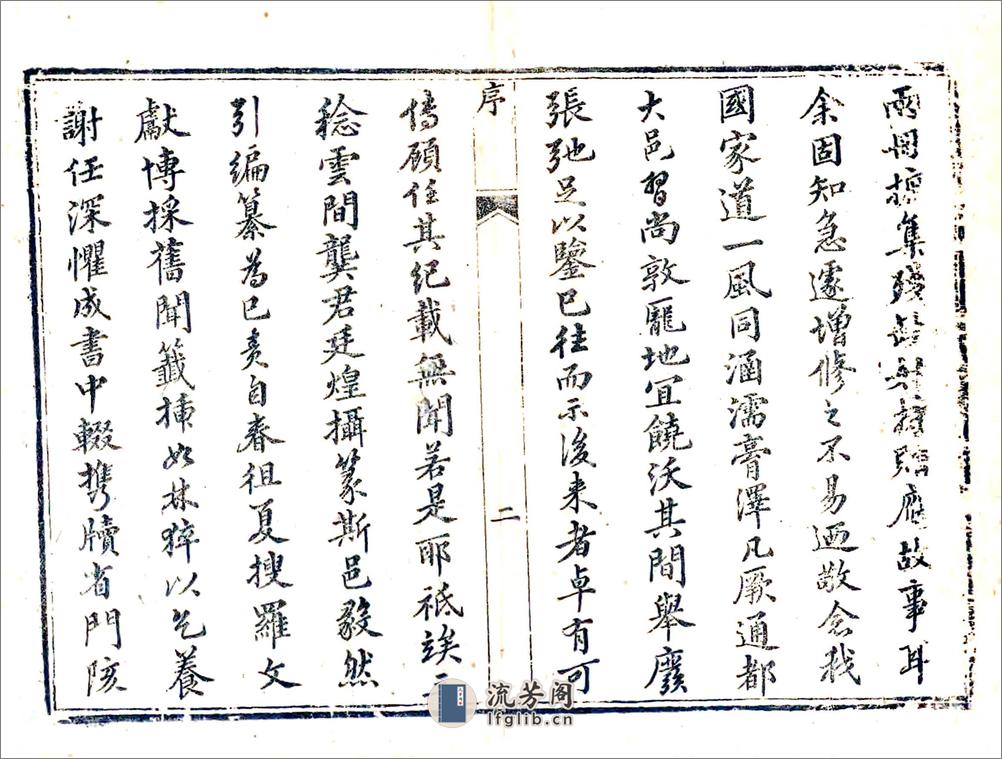 兩冊摭集殘故事耳
余固知急遽增修之不易迺敬念我
國家道一風同涵濡膏澤凡厥通都
大邑習尚敦龐地宜饒沃其間舉廢
張弛足以鑒已往而示後来者卓有可
序
二
傳顧任其紀載無聞若是耶祗竢三
稔雲間龔君廷煌攝篆斯邑毅然
引編纂為已責自春徂夏搜羅文
獻博採舊聞籤插如林猝以乞養
謝任深懼成書中輟携牘省門陔
流芳阁
lfglib.cn